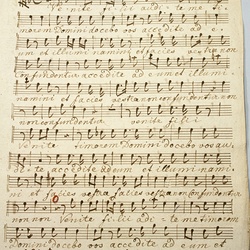 Venite filii audite me ti
morem Domini docebo vos accedite ad e
um et illuminamini et facies vestra non
Confundentur accedite ad eum et illumi
namini et facies vestra non confundentur non
non confundentur venite filii
Venite timorem Domini docebo vos au
dite accedite ad eum et illuminami
ni et facies vestra facies vestra non confundentur
non non Venite filii audite me timorem
Domini docebo vos accedite ad eum et